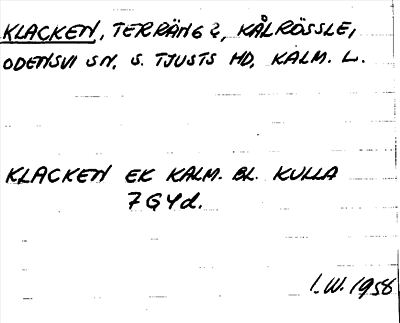 KLACKEN, TERRÄNG?, KÅLRÖSSLE,
ODENSVI SN, S. TJUSTS HD, KALM. L.
KLACKEN EK KALM. BL. KULLA
7 G Y d.
I.W. 1958